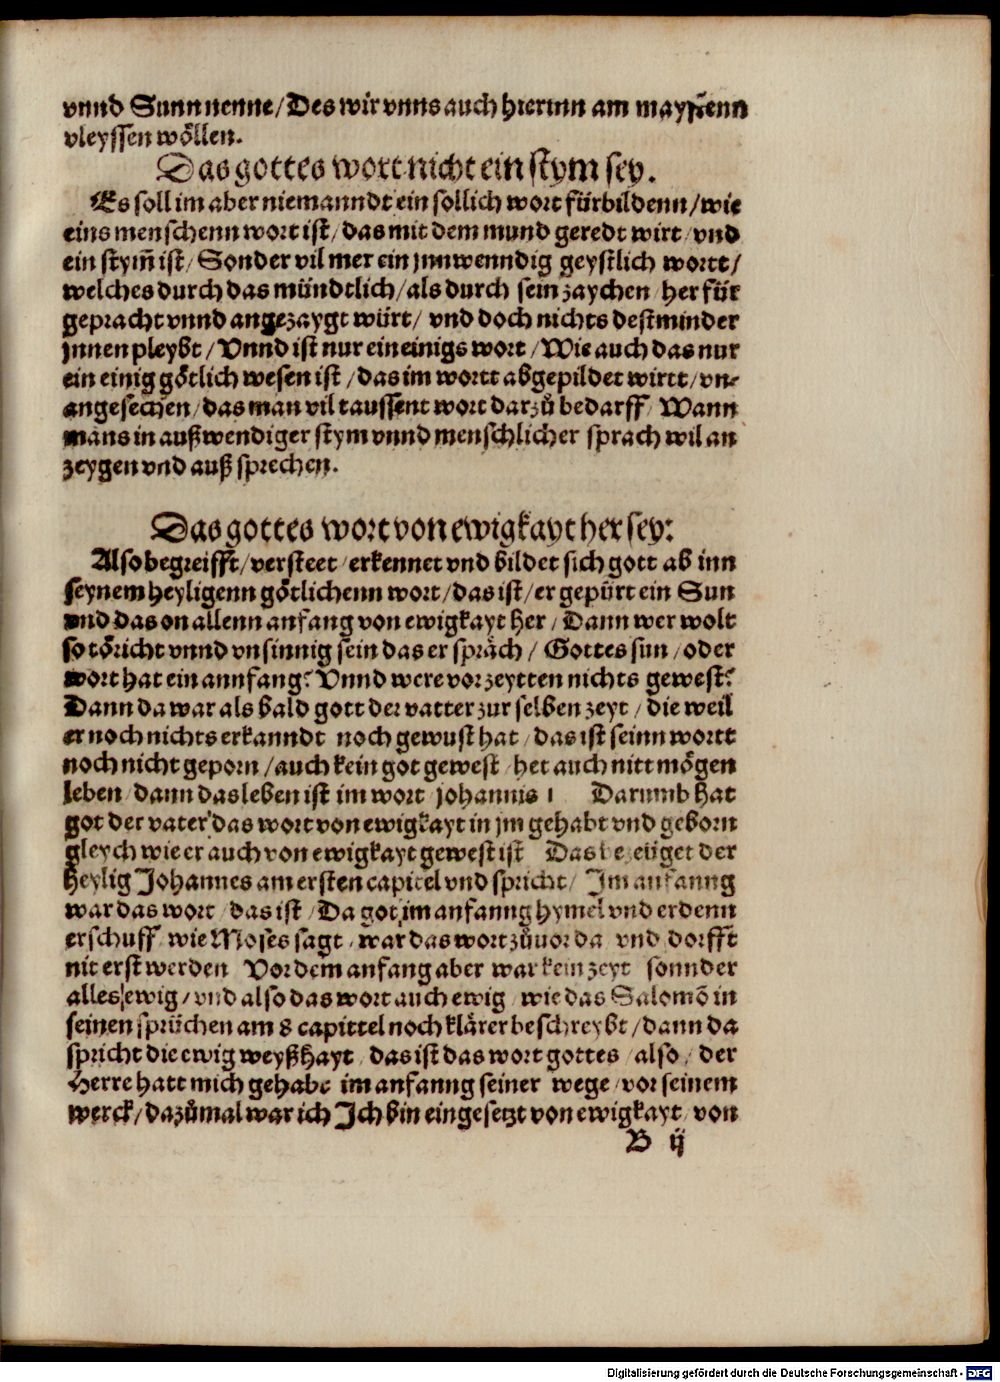 vnnd Sunn nenne/Des wir vnns auch hierinn am maysten
vleyssen wöllen.
Das gottes wort nicht ein stym sey.
Es soll im aber niemanndt ein sollich wort fürbildenn/wie
eins menschenn wort ist/das mit dem mund geredt wirt/vnd
ein stym̃ ist/Sonder vil mer ein jnnwenndig geystlich wortt/
welches durch das mündtlich/als durch sein zaychen/herfür
gepracht vnnd angezaygt würt/vnd doch nichts destminder
jnnen pleybt/Vnnd ist nur ein einigs wort/Wie auch das nur
ein einig götlich wesen ist/das im wortt abgepildet wirtt/vn-
angesechen/das man vil taussent wort darzů bedarff/Wann
mans in außwendiger stym vnnd menschlicher sprach wil an
zeygen vnd außsprechen.
Das gottes wort von ewigkayt her sey:
Also begreifft/versteet/erkennet vnd bildet sich gott ab inn
seynem heyligenn götlichenn wort/das ist/er gepürt ein Sun
vnd das on allenn anfang von ewigkayt her/Dann wer wolt
so töricht vnnd vnsinnig sein das er spräch/Gottes sun/oder
wort hat ein annfang? Vnnd were vorzeytten nichts gewest?
Dann da war als bald gott der vatter zur selben zeyt/die weil
er noch nichts erkanndt noch gewust hat/das ist seinn wortt
noch nicht geporn/auch kein got gewest/het auch nitt mögen
leben/dann das leben ist im wort johannis 1 Darumb hat
got der vater das wort von ewigkayt in jm gehabt vnd geborn
gleych wie er auch von ewigkayt gewest ist Das bezeüget der
heylig Johannes am ersten capitel vnd spricht/Im anfanng
war das wort/das ist/Da got im anfanng hymel vnd erdenn
erschuff/wie Moses sagt/war das wort zůuor da vnd dorfft
nit erst werden Vor dem anfang aber war kein zeyt sonnder
alles ewig/vnd also das wort auch ewig/wie das Salomõ in
seinen sprüchen am 8 capittel noch klärer beschreybt/dann da
spricht die ewig weyßhayt/das ist das wort gottes/also/der
Herre hatt mich gehabt im anfanng seiner wege/vor seinem
werck/dazůmal war ich Ich bin eingesetzt von ewigkayt/von
B ij
Digitalisierung gefördert durch die Deutsche Forschungsgemeinschaft - DFG